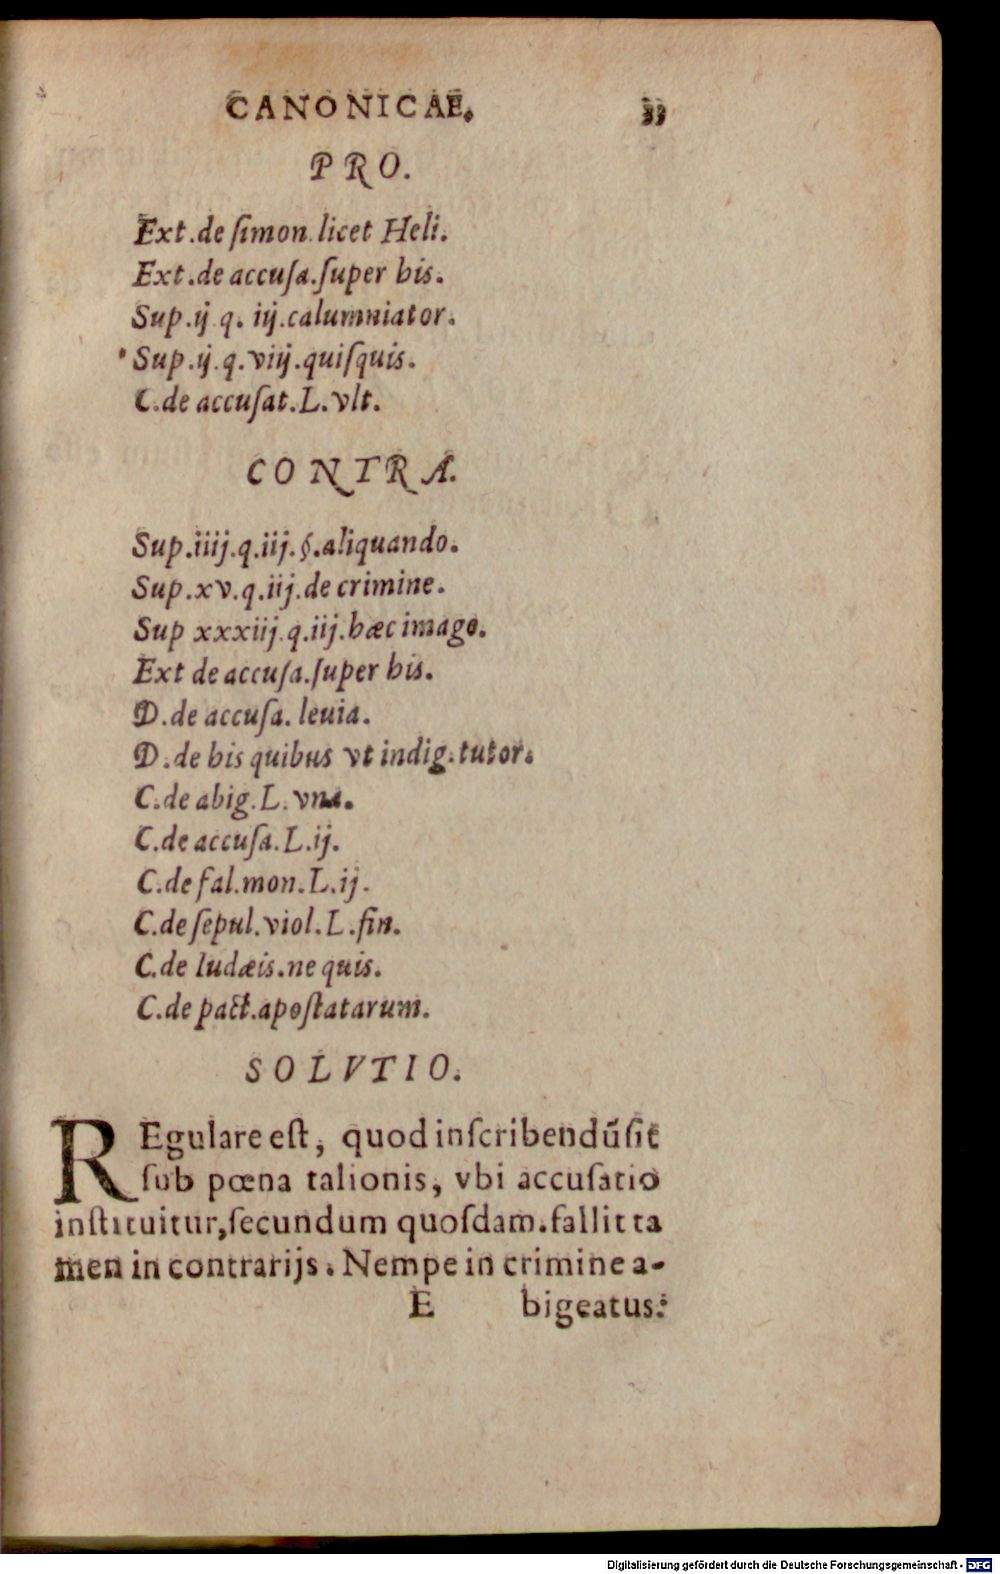 CANONICAE. 33
PRO.
Ext.de ſimon.licet Heli.
Ext.de accuſa.ſuper his.
Sup.ij.q. iij.calumniator.
Sup.ij.q.viij.quiſquis.
C.de accuſat.L.vlt.
CONTRA.
Sup.iiij.q.iij.§.aliquando.
Sup.xv.q.iij.de crimine.
Sup xxxiij.q.iij.hæc imago.
Ext de accuſa.ſuper his.
D.de accuſa. leuia.
D.de his quibus vt indig.tutor.
C.de abig.L.vna.
C.de accuſa.L.ij.
C.de fal.mon.L.ij.
C.de ſepul.viol.L.fin.
C.de Iudæis.ne quis.
C.de pact.apoſtatarum.
SOLVTIO.
REgulare eſt, quod inſcribendū ſit
ſub pœna talionis, vbi accuſatio
inſtituitur,ſecundum quoſdam.fallit ta
men in contrarijs. Nempe in crimine a-
E bigeatus:
Digitalisierung gefördert durch die Deutsche Forschungsgemeinschaft - DFG